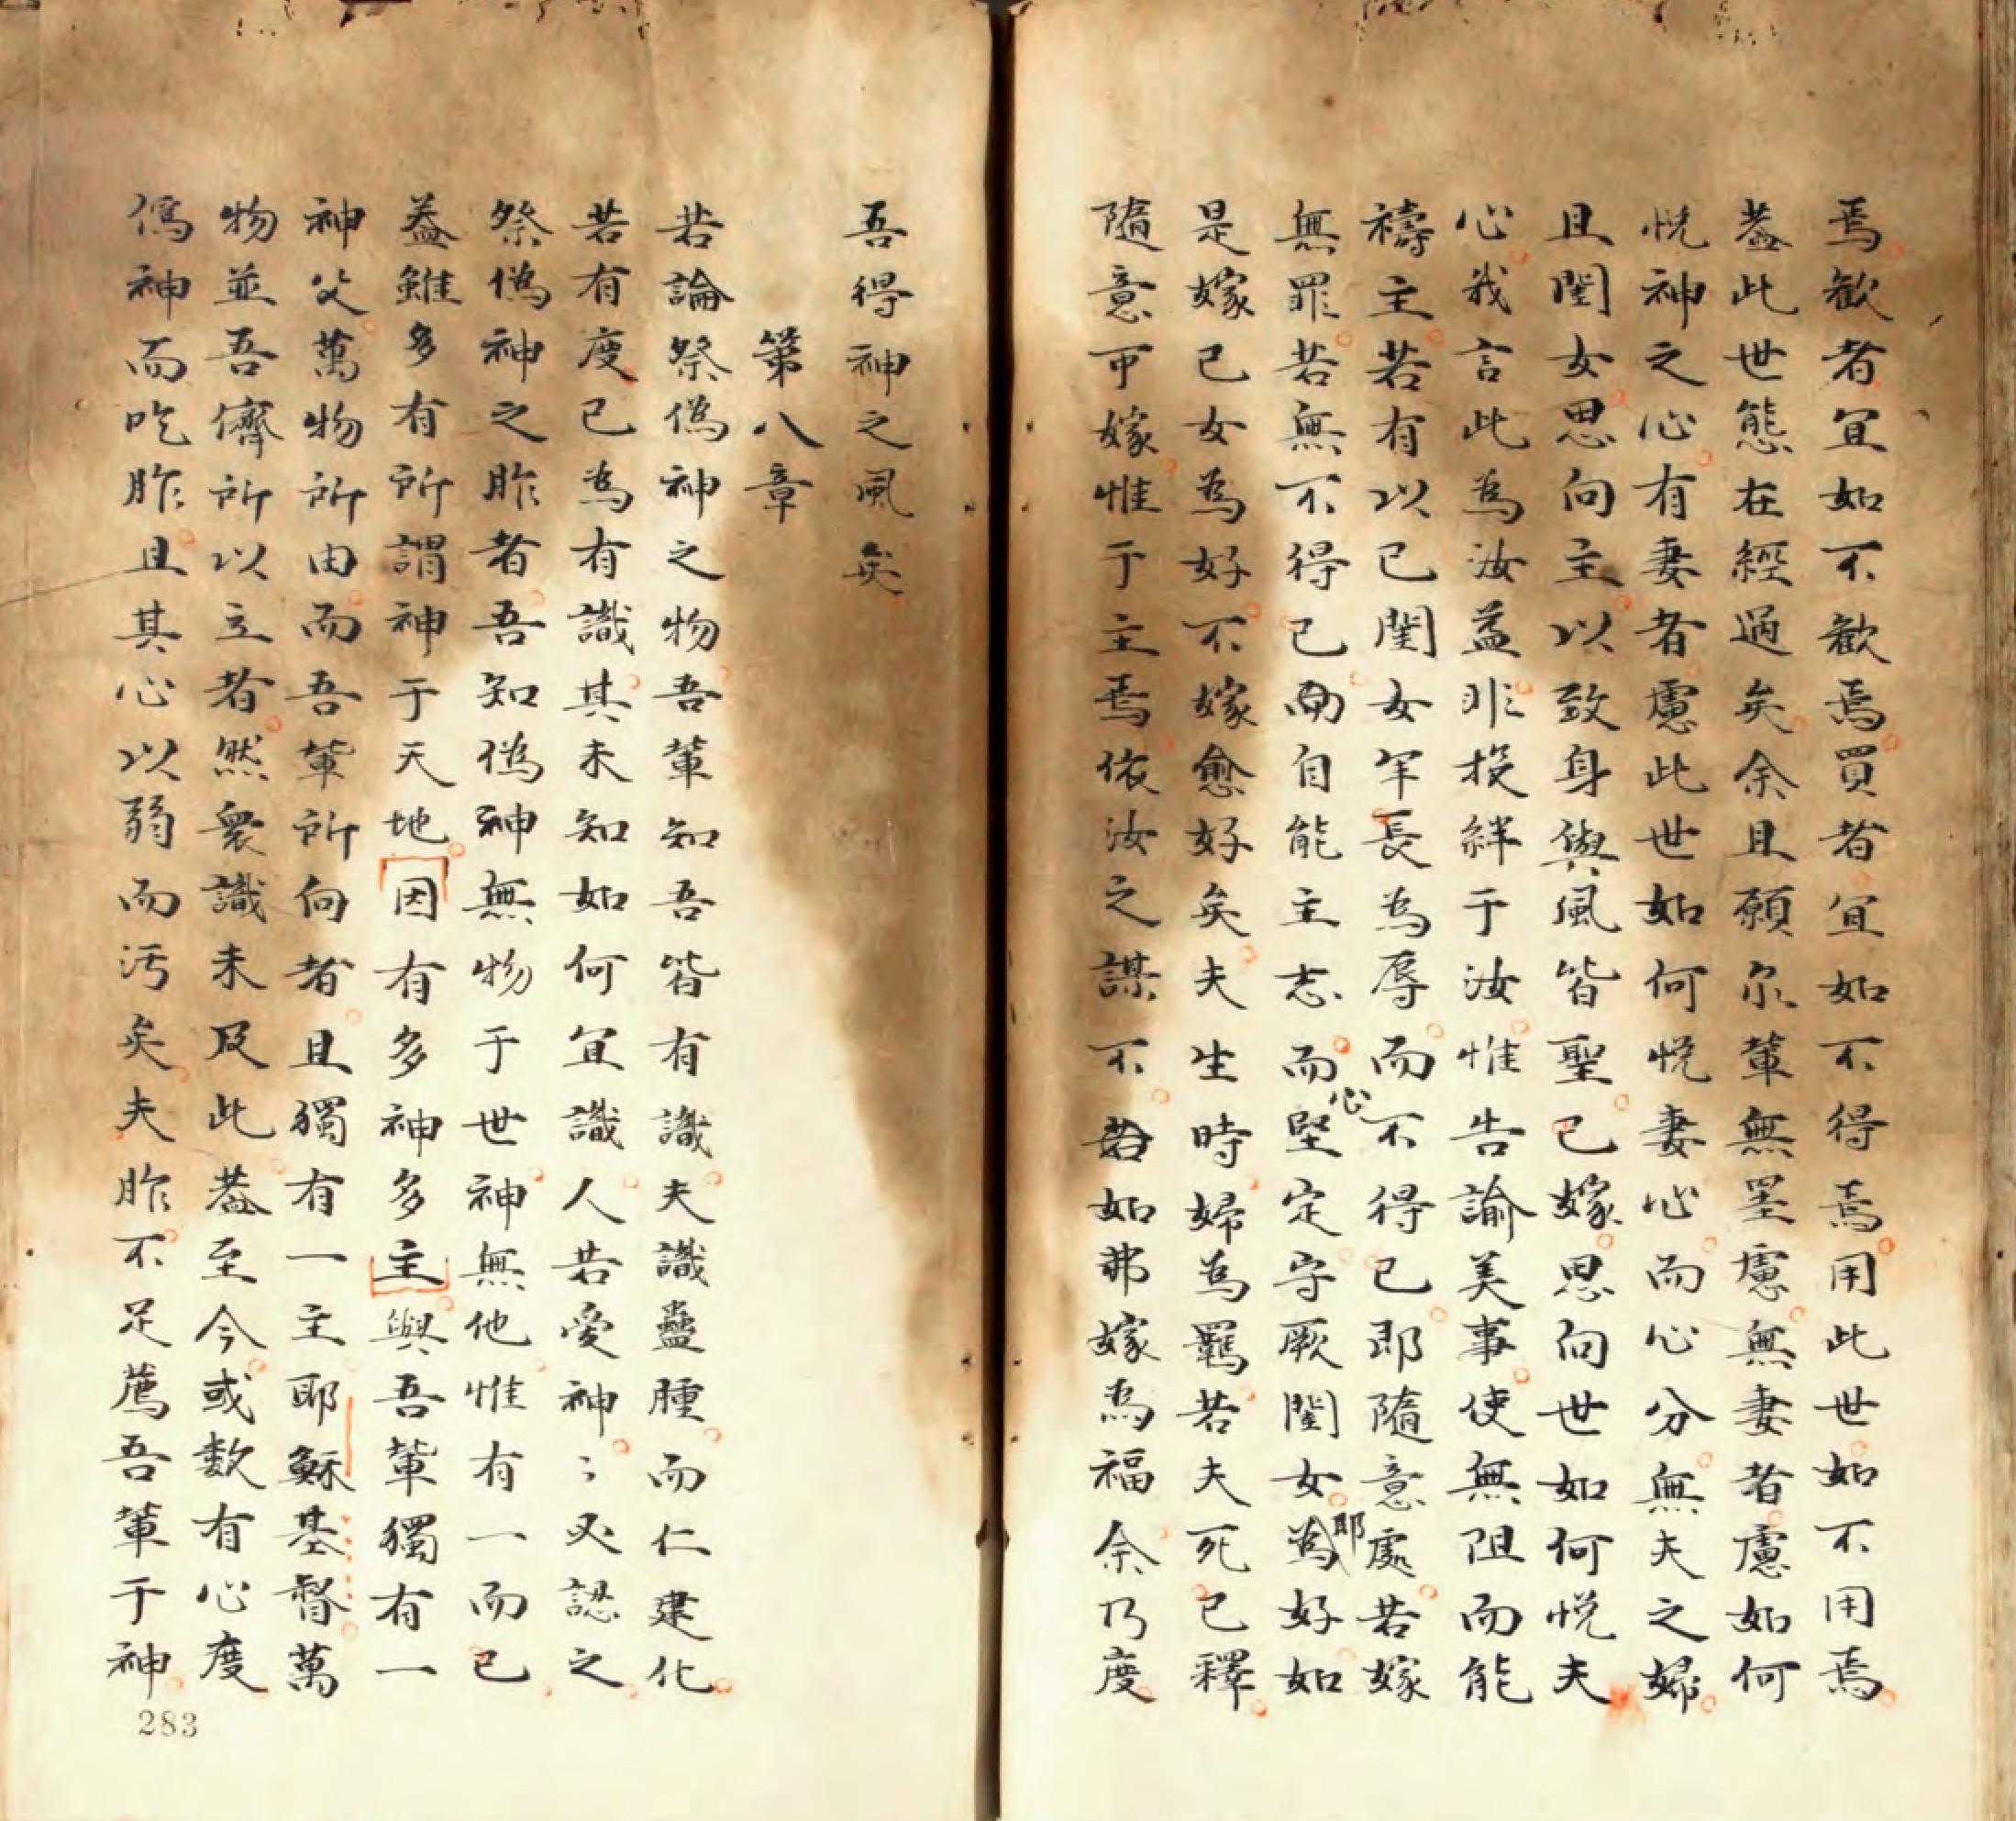 焉歡者宜如不歡焉買者宜如不得焉用此世如不用焉
葢此世態在經過矣余且願尔輩無罣慮無妻者慮如何
悅神之心有妻者慮此世如何悅妻心而心分無夫之婦
且閨女思向主以致身與風皆聖已嫁思向世如何悅夫
心我言此為汝益非投絆于汝惟告諭美事使無阻而能
禱主若有以已閨女年長為辱而不得已即隨意處若嫁
無罪若無不得已而自能主志而心堅定守厥閨女為好如
耶
是嫁已女為好不嫁愈好矣夫生時婦為羈若夫死已釋
隨意可嫁惟于主焉依汝之謀不如弗嫁為福余乃度
吾得神之風矣
第八章
若論祭偽神之物吾輩知吾皆有識夫識蠱腫而仁建化
若有度已為有識其未知如何宜識人若愛神〻必認之
祭偽神之胙者吾知偽神無物于世神無他惟有一而已
葢雖多有所謂神于天地因有多神多主與吾輩獨有一
神父萬物所由而吾輩所向者且獨有一主耶穌基督萬
物並吾儕所以立者然衆識未及此葢至今或数有心度
偽神而吃胙且其心以弱而污矣夫胙不足薦吾輩于神
283